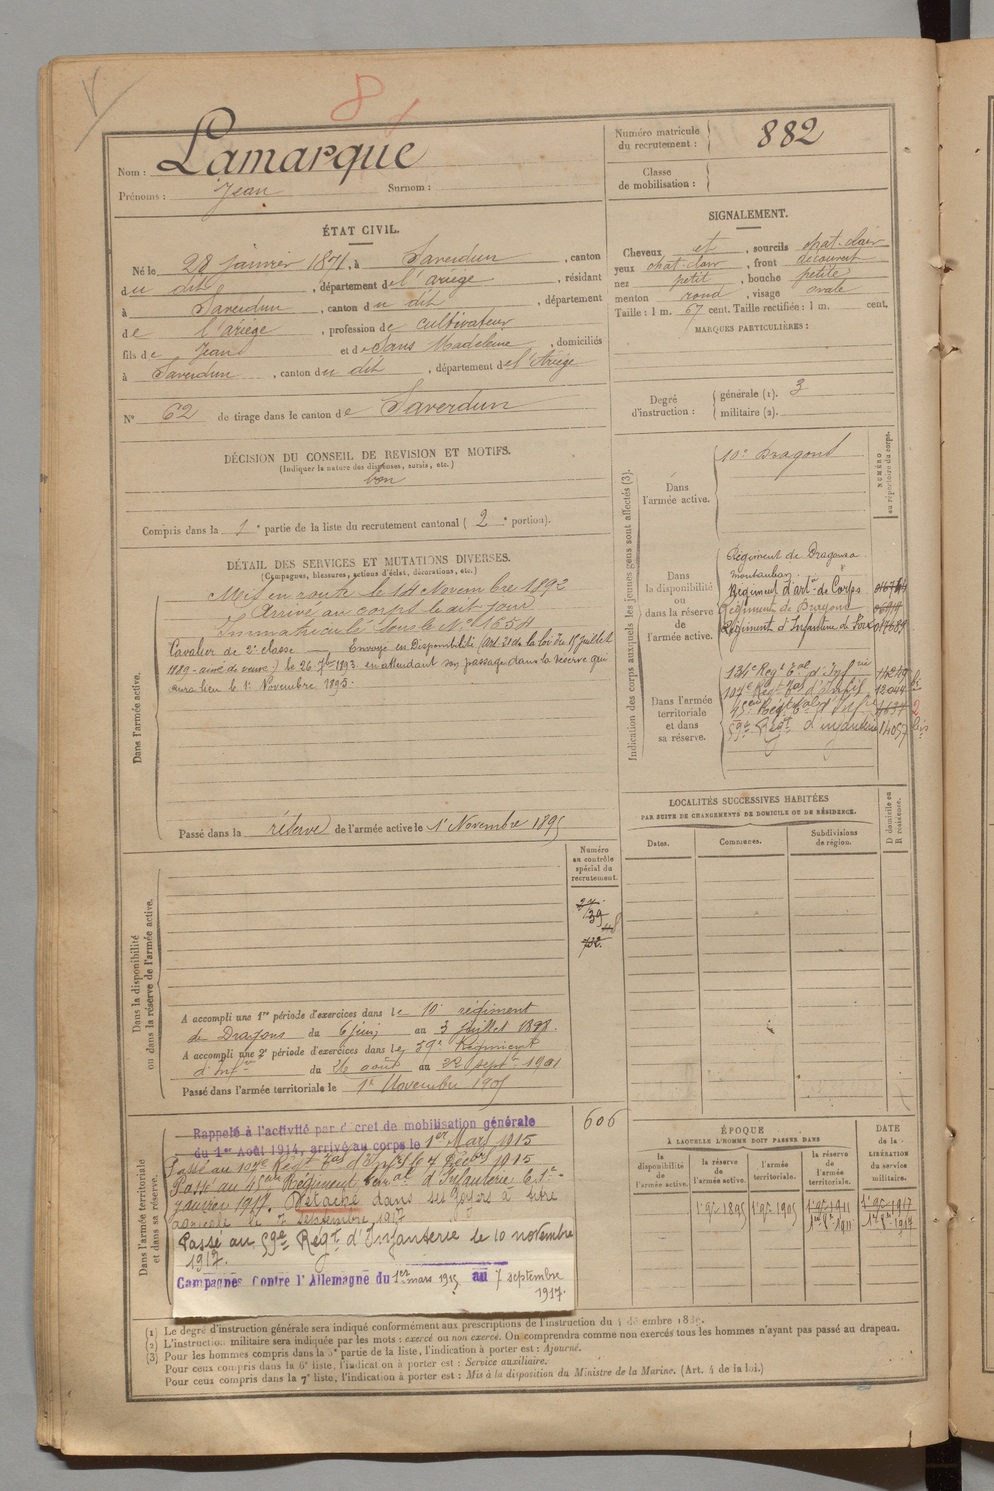 8
Nom : Lamarque
Prénoms : Jean Surnom :
Numéro matricule du recrutement : 882
Classe de mobilisation :
ÉTAT CIVIL.
Né le 28 janvier 1871, à Saverdun, canton
du dit, département de l'ariège, résidant
à Saverdun, canton du dit, département
de l'ariège, profession de cultivateur
fils de Jean et de Sans Madeleine, domiciliés
à Saverdun, canton du dit, département de l'Ariège
N° 62 de tirage dans le canton de Saverdun
SIGNALEMENT.
Cheveux et, sourcils chat-clair
yeux chat-clair, front découvert
nez petit, bouche petite
menton rond, visage ovale
Taille : 1 m. 67 cent. Taille rectifiée : 1 m. cent.
MARQUES PARTICULIÈRES :
Degré d'instruction : générale (1). 3
militaire (2).
DÉCISION DU CONSEIL DE REVISION ET MOTIFS.
(Indiquer la nature des dispenses, sursis, etc.)
bon
Compris dans la 1e partie de la liste du recrutement cantonal (2e portion).
DÉTAIL DES SERVICES ET MUTATIONS DIVERSES.
(Campagnes, blessures, actions d'éclat, décorations, etc.)
Dans l'armée active.
Mis en route le 14 Novembre 1892
Arrivé au corps le dit jour
Immatriculé sous le N° 1654
Cavalier de 2e classe — Envoyé en Disponibilité (Art. 21 de la loi du 15 juillet
1889 - aîné de veuve) le 26 7bre 1893 en attendant son passage dans la réserve qui
aura lieu le 1er Novembre 1895.
Passé dans la réserve de l'armée active le 1er Novembre 1895
Indication des corps auxquels les jeunes gens sont affectés (3).
NUMÉRO au répertoire du corps.
Dans l'armée active.
10e Dragons
Dans la disponibilité ou dans la réserve de l'armée active.
Régiment de Dragons
Montauban
Régiment d'artie de Corps
Régiment de Dragons
Régiment d'Infanterie de
Dans l'armée territoriale et dans sa réserve.
134e Régt Tal d'Infrie
107e Régt Tal d'Infie
45eme Régt Tal d'Infie
59e Régt d'infanterie 14057 bis
LOCALITÉS SUCCESSIVES HABITÉES
PAR SUITE DE CHANGEMENTS DE DOMICILE OU DE RÉSIDENCE.
Dates. Communes. Subdivisions de région. D domicile ou R résidence.
Dans la disponibilité ou dans la réserve de l'armée active.
Numéro au contrôle spécial du recrutement.
39
732
A accompli une 1re période d'exercices dans le 10e régiment
de Dragons du 6 juin au 3 juillet 1898.
A accompli une 2e période d'exercices dans le 59e Régiment
d'Infie du 26 août au 22 septe 1901
Passé dans l'armée territoriale le 1er Novembre 1905
Dans l'armée territoriale et dans sa réserve.
606
Rappelé à l'activité par décret de mobilisation générale
du 1er Août 1914, arrivé au corps le 1er Mars 1915
Passé au 107e Régt Tal d'Infie le 4 1915
Passé au 45eme Régiment d'Infanterie
janvier 1917. Détaché dans ses foyers à titre
agricole le 7 septembre 1917
Passé au 59e Régt d'Infanterie le 10 novembre
1917.
Campagnes Contre l'Allemagne du 1er mars 1915 au 7 septembre
1917.
ÉPOQUE
À LAQUELLE L'HOMME DOIT PASSER DANS
la disponibilité de l'armée active. la réserve de l'armée active. l'armée territoriale. la réserve de l'armée territoriale.
DATE de la LIBÉRATION du service militaire.
1er 9bre 1895 1er 9bre 1905 1er 9bre 1911 1er 9bre 1917
(1) Le degré d'instruction générale sera indiqué conformément aux prescriptions de l'instruction du 4 décembre 1889.
(2) L'instruction militaire sera indiquée par les mots : exercé ou non exercé. On comprendra comme non exercés tous les hommes n'ayant pas passé au drapeau.
(3) Pour les hommes compris dans la 5e partie de la liste, l'indication à porter est : Ajourné.
Pour ceux compris dans la 6e liste, l'indication à porter est : Service auxiliaire.
Pour ceux compris dans la 7e liste, l'indication à porter est : Mis à la disposition du Ministre de la Marine. (Art. 4 de la loi.)